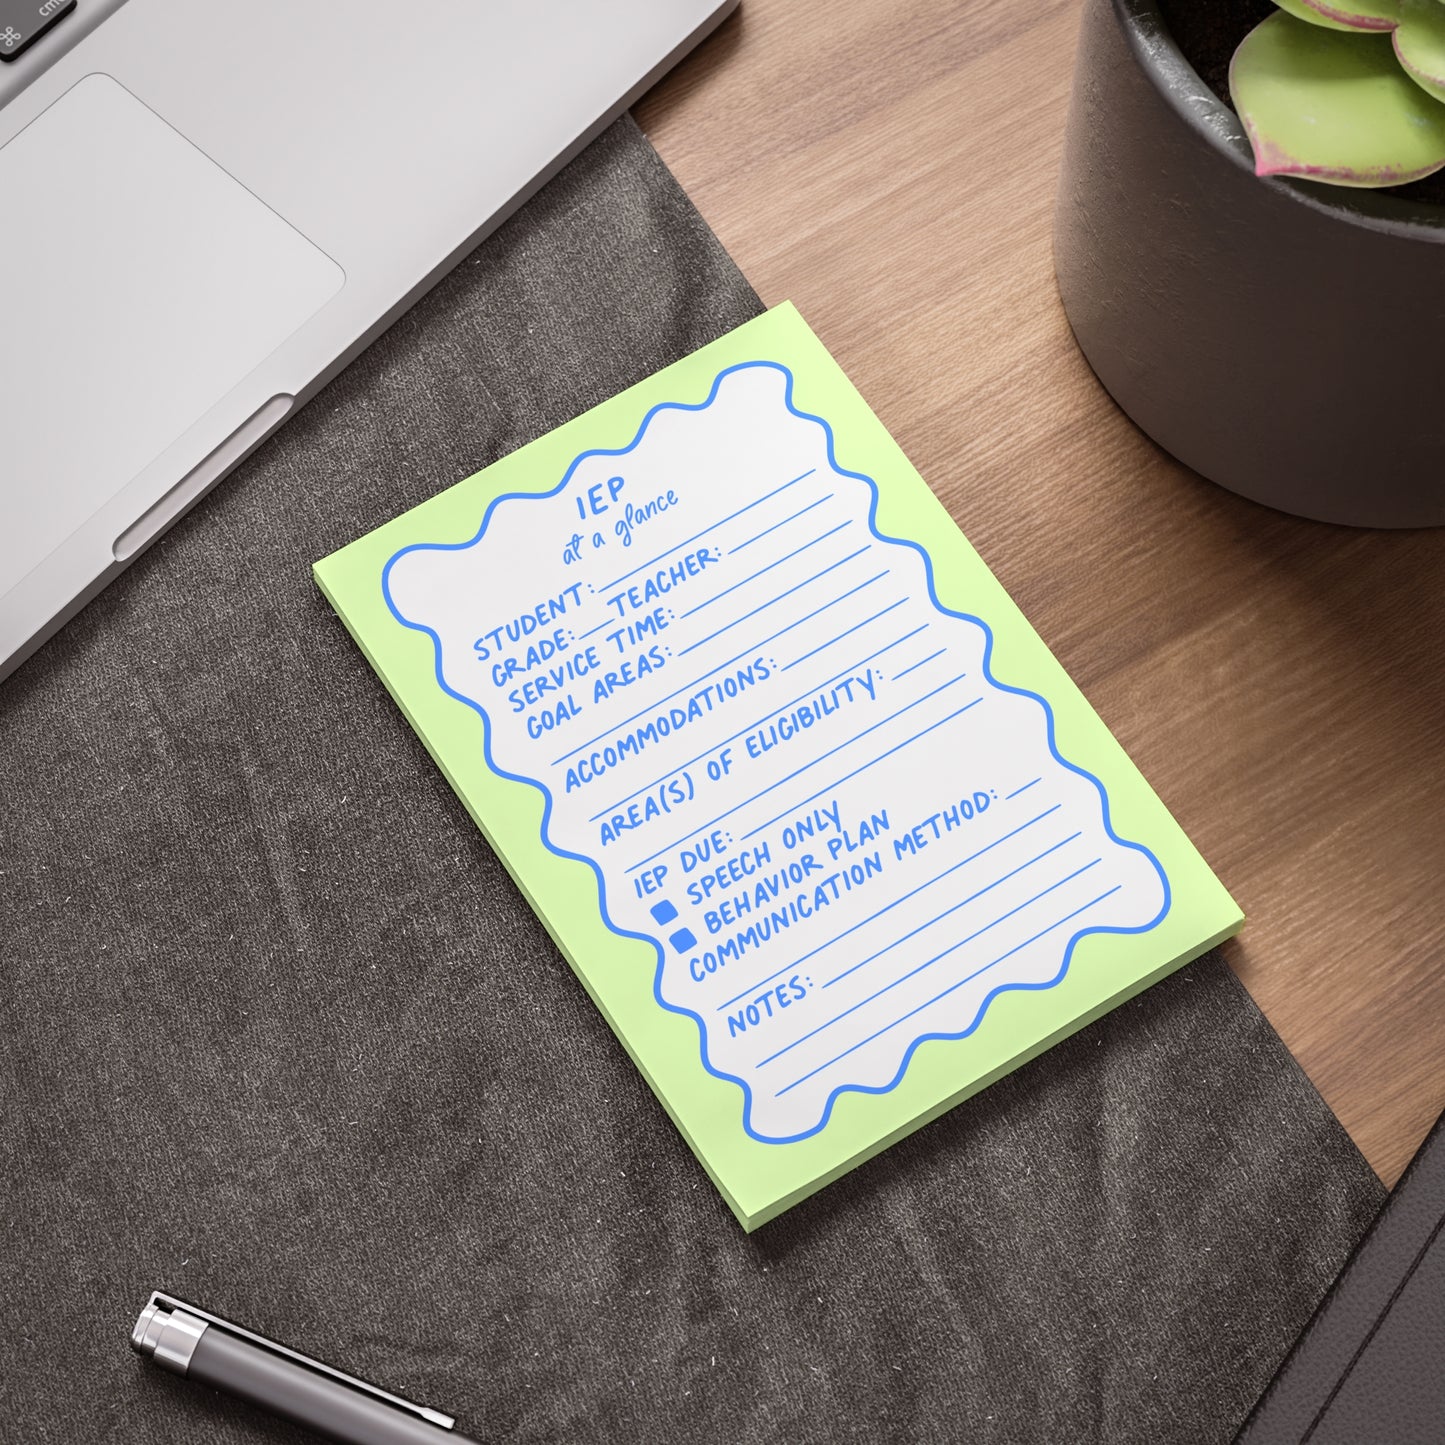 ⌘
IEP
at a glance
STUDENT:
GRADE: TEACHER:
SERVICE TIME:
GOAL AREAS:
ACCOMMODATIONS:
AREA(S) OF ELIGIBILITY:
IEP DUE:
SPEECH ONLY
BEHAVIOR PLAN
COMMUNICATION METHOD:
NOTES: